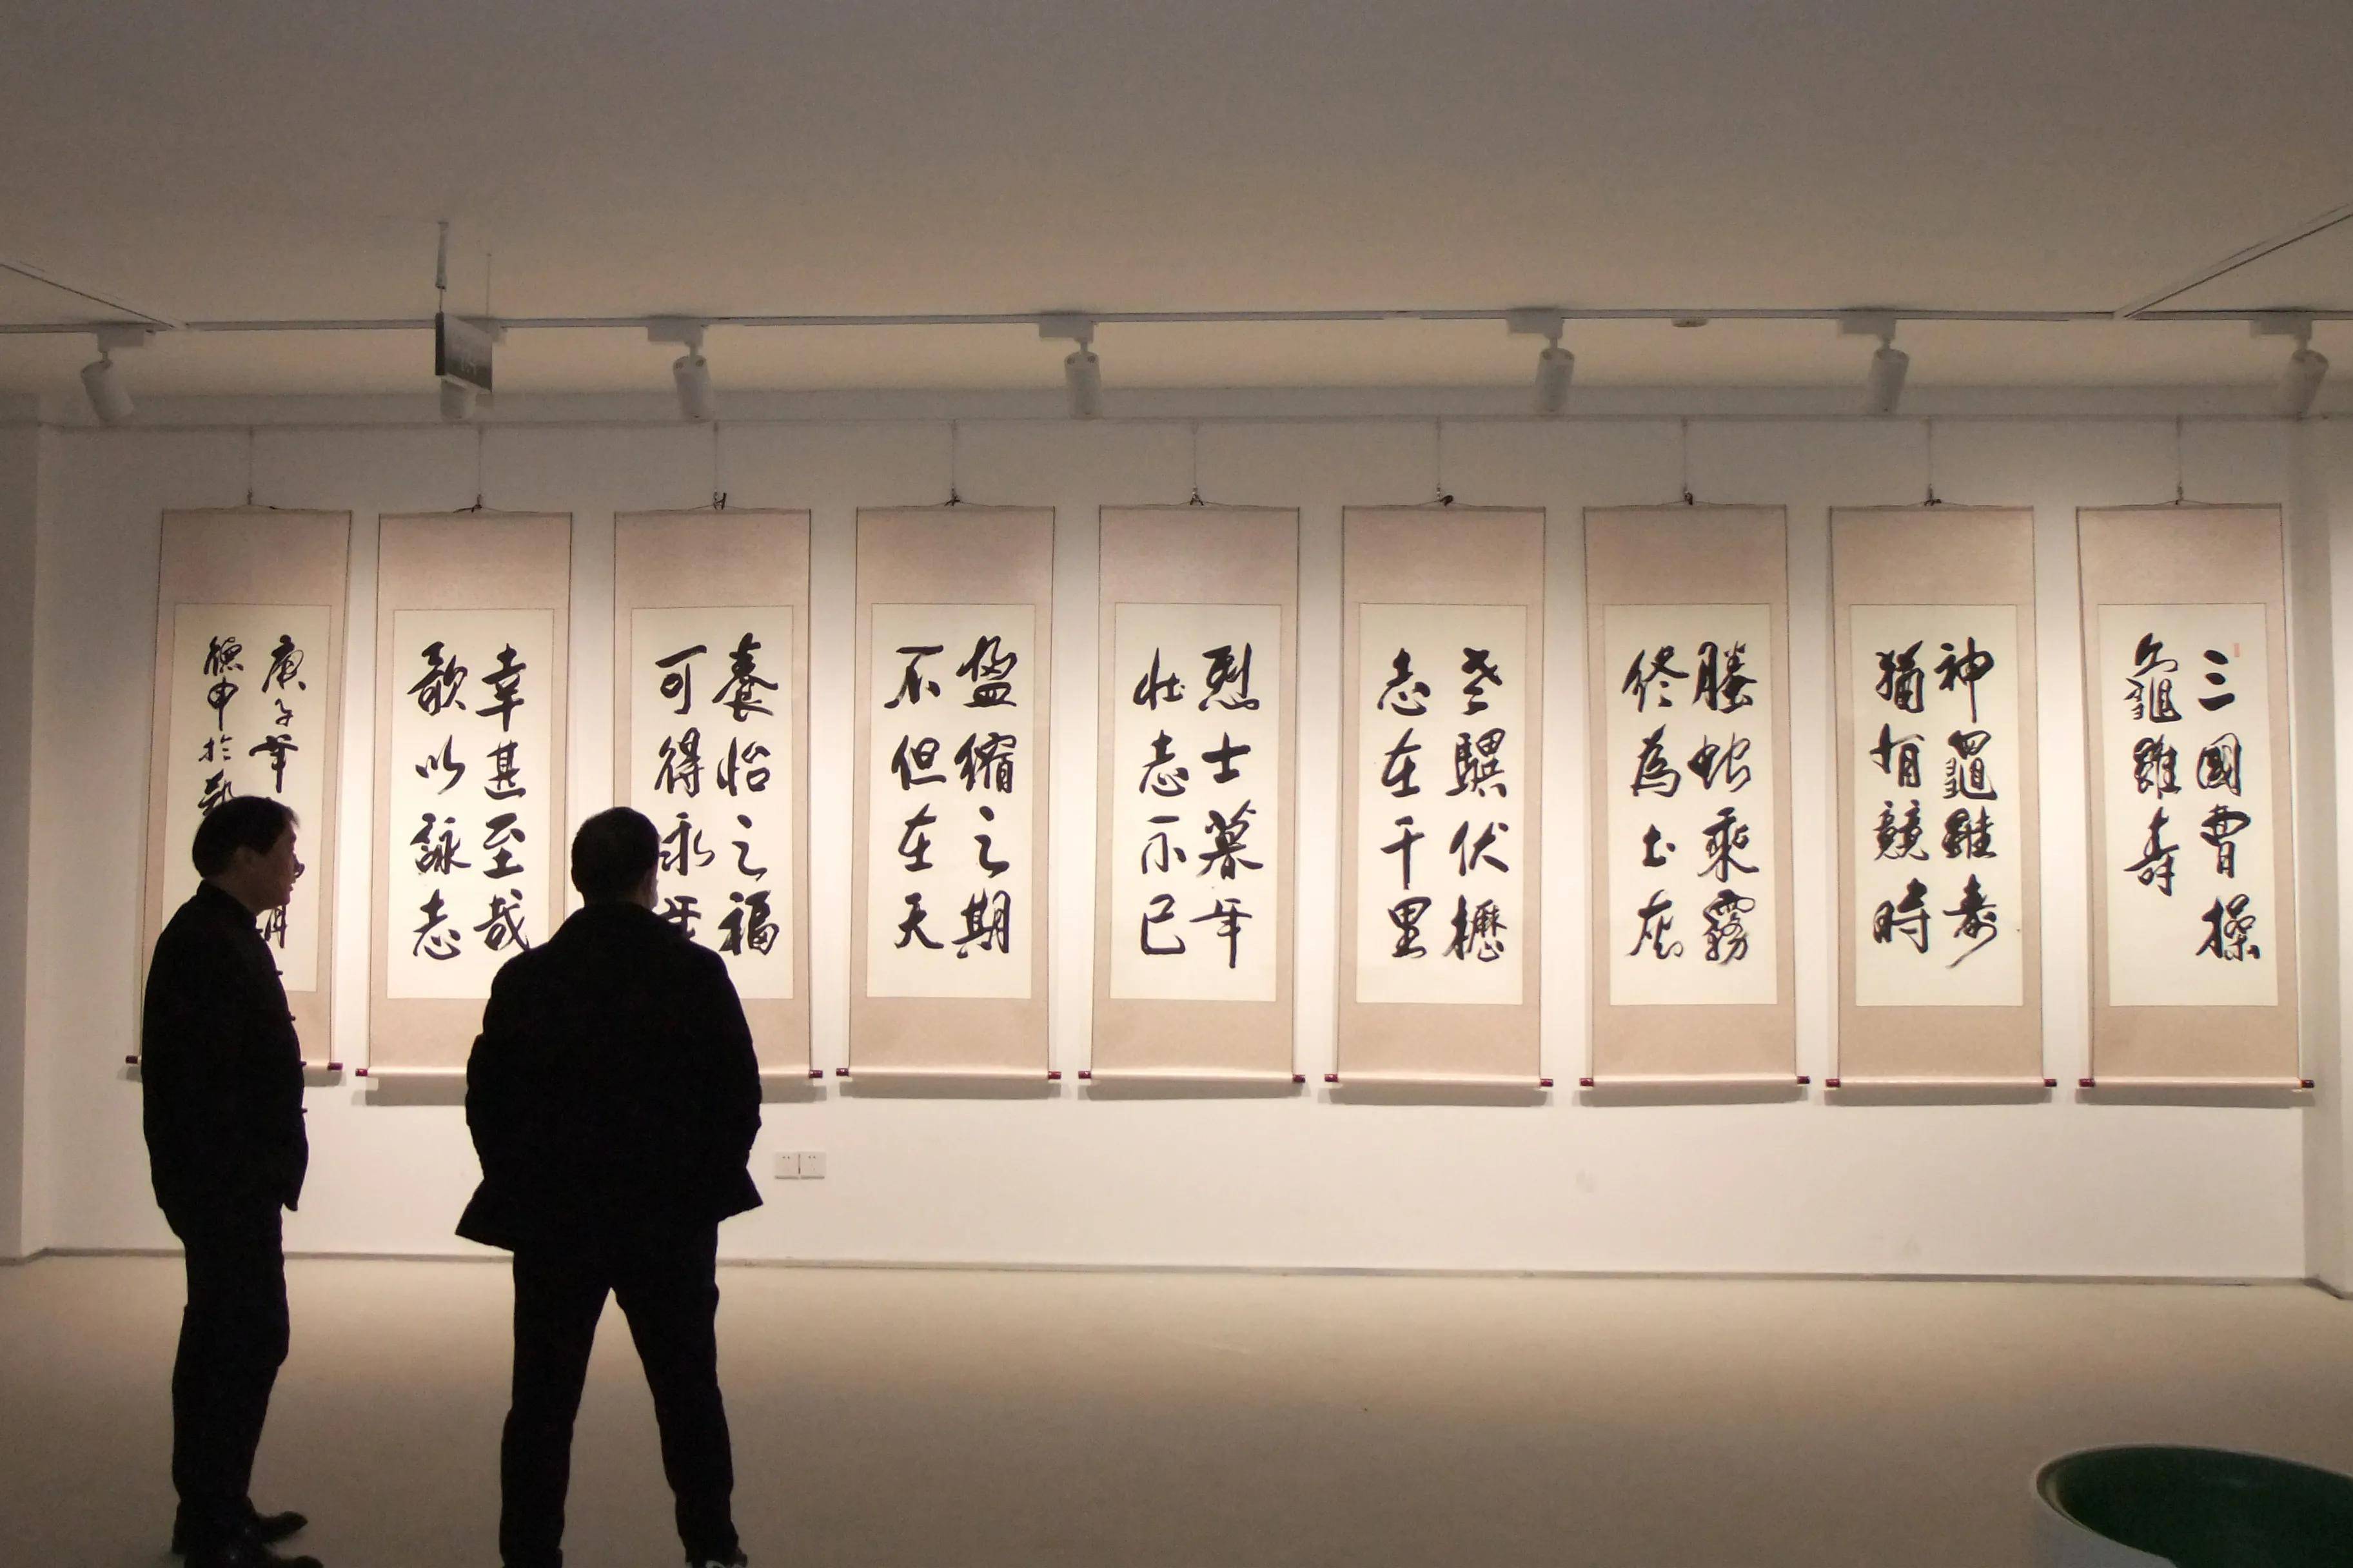 三國曹操
龜雖壽
神龜雖壽
猶有競時
螣蛇乘霧
終為土灰
老驥伏櫪
志在千里
烈士暮年
壯志不已
盈縮之期
不但在天
養怡之福
可得永年
幸甚至哉
歌以詠志
庚子
德申於